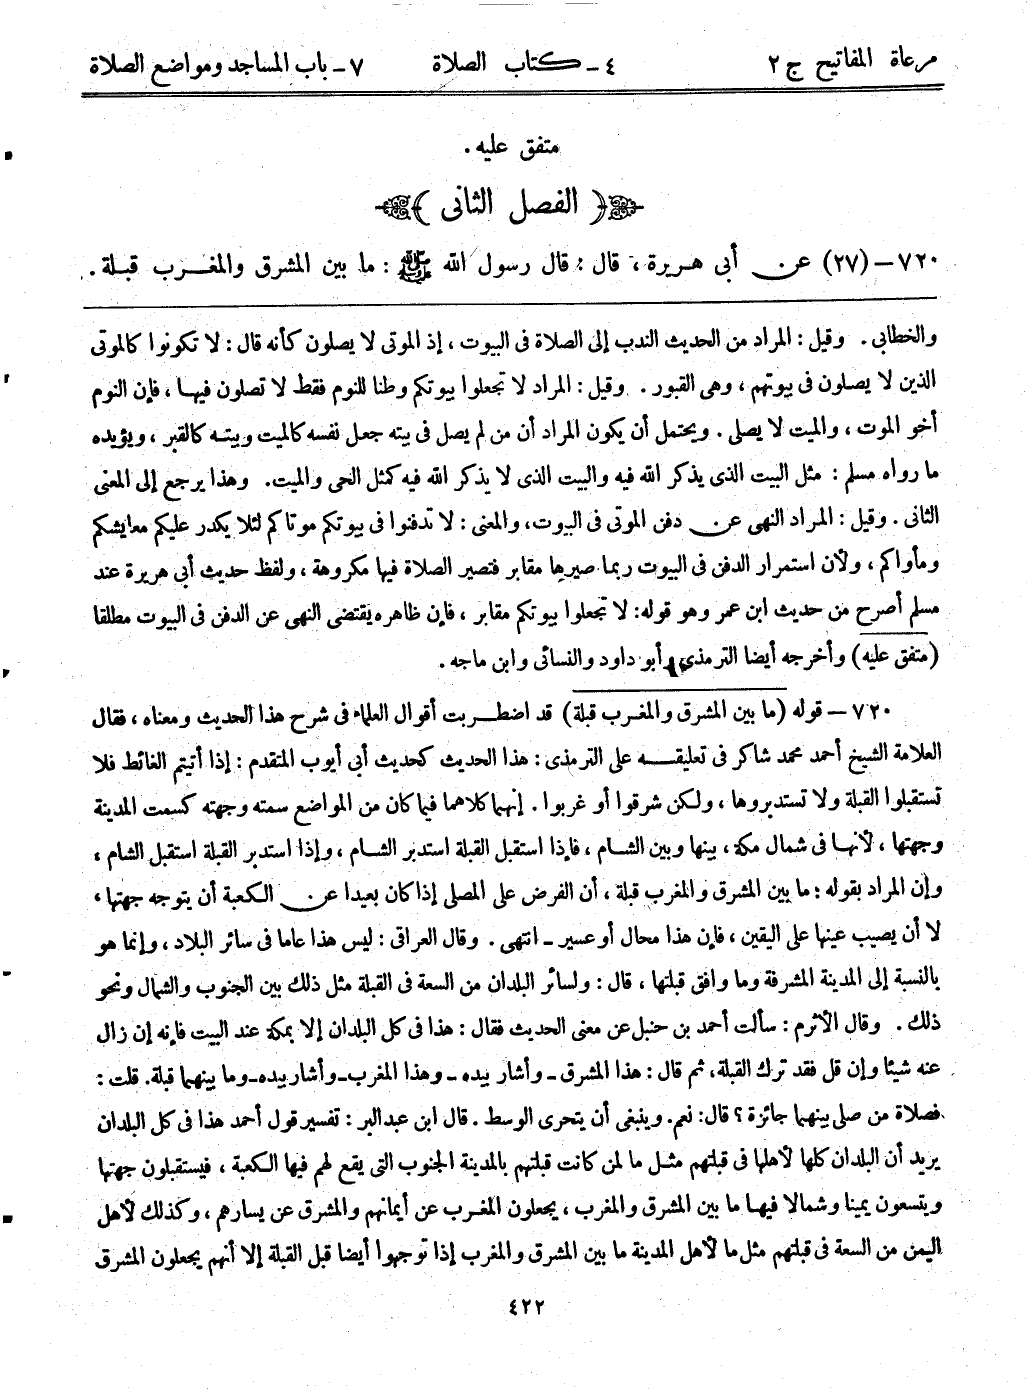 مرعاة المفاتيح ج ٢ ٤ ـ كتاب الصلاة ٧ ـ باب المساجد ومواضع الصلاة
متفق عليه .
﴿ الفصل الثانى ﴾
٧٢٠ – (٢٧) عن أبى هريرة ، قال : قال رسول الله ﷺ : ما بين المشرق والمغرب قبلة .
والخطابى . وقيل : المراد من الحديث الندب إلى الصلاة فى البيوت ، إذ الموتى لا يصلون كأنه قال : لا تكونوا كالموتى
الذين لا يصلون فى بيوتهم ، وهى القبور . وقيل : المراد لا تجعلوا بيوتكم وطنا للنوم فقط لا تصلون فيها ، فإن النوم
أخو الموت ، والميت لا يصلى . ويحتمل أن يكون المراد أن من لم يصل فى بيته جعل نفسه كالميت وبيته كالقبر ، ويؤيده
ما رواه مسلم : مثل البيت الذى يذكر الله فيه والبيت الذى لا يذكر الله فيه كمثل الحى والميت . وهذا يرجع إلى المعنى
الثانى . وقيل : المراد النهى عن دفن الموتى فى البيوت ، والمعنى : لا تدفنوا فى بيوتكم موتاكم لئلا يكدر عليكم معايشكم
ومأواكم ، ولأن استمرار الدفن فى البيوت ربما صيرها مقابر فتصير الصلاة فيها مكروهة ، ولفظ حديث أبى هريرة عند
مسلم أصرح من حديث ابن عمر وهو قوله : لا تجعلوا بيوتكم مقابر ، فإن ظاهره يقتضى النهى عن الدفن فى البيوت مطلقا
(متفق عليه) وأخرجه أيضا الترمذى وأبو داود والنسائى وابن ماجه .
٧٢٠ – قوله (ما بين المشرق والمغرب قبلة) قد اضطربت أقوال العلماء فى شرح هذا الحديث ومعناه ، فقال
العلامة الشيخ أحمد محمد شاكر فى تعليقه على الترمذى : هذا الحديث كحديث أبى أيوب المتقدم : إذا أتيتم الغائط فلا
تستقبلوا القبلة ولا تستدبروها ، ولكن شرقوا أو غربوا . إنهما كلاهما فيما كان من المواضع سمته وجهته كسمت المدينة
وجهتها ، لأنها فى شمال مكة ، بينها وبين الشام ، فإذا استقبل القبلة استدبر الشام ، وإذا استدبر القبلة استقبل الشام ،
وإن المراد بقوله : ما بين المشرق والمغرب قبلة ، أن الفرض على المصلى إذا كان بعيدا عن الكعبة أن يتوجه جهتها ،
لا أن يصيب عينها على اليقين ، فإن هذا محال أو عسير ـ انتهى . وقال العراقى : ليس هذا عاما فى سائر البلاد ، وإنما هو
بالنسبة إلى المدينة المشرفة وما وافق قبلتها ، قال : ولسائر البلدان من السعة فى القبلة مثل ذلك بين الجنوب والشمال ونحو
ذلك . وقال الأثرم : سألت أحمد بن حنبل عن معنى الحديث فقال : هذا فى كل البلدان إلا بمكة عند البيت فإنه إن زال
عنه شيئا وإن قل فقد ترك القبلة ، ثم قال : هذا المشرق ـ وأشار بيده ـ وهذا المغرب ـ وأشار بيده ـ وما بينهما قبلة . قلت :
فصلاة من صلى بينهما جائزة ؟ قال : نعم . وينبغى أن يتحرى الوسط . قال ابن عبد البر : تفسير قول أحمد هذا فى كل البلدان
يريد أن البلدان كلها لأهلها فى قبلتهم مثل ما لمن كانت قبلتهم بالمدينة الجنوب التى يقع لهم فيها الكعبة ، فيستقبلون جهتها
ويتسعون يمينا وشمالا فيها ما بين المشرق والمغرب ، يجعلون المغرب عن أيمانهم والمشرق عن يسارهم ، وكذلك لأهل
اليمن من السعة فى قبلتهم مثل ما لأهل المدينة ما بين المشرق والمغرب إذا توجهوا أيضا قبل القبلة إلا أنهم يجعلون المشرق
٤٢٢